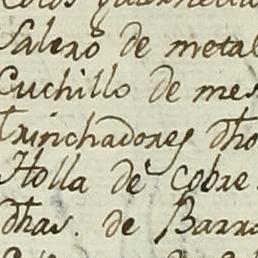 Salero de metal
Cuchillo de mes
Trinchadores dho
Holla de cobre
dhas. de Barro